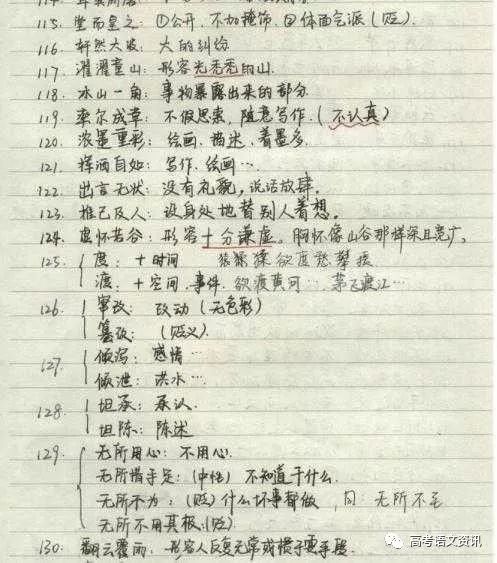 115. 堂而皇之：①公开，不加掩饰 ②体面气派（贬）
116. 轩然大波：大的纠纷
117. 濯濯童山：形容光秃秃的山.
118. 冰山一角：事物暴露出来的部分
119. 率尔成章：不假思索，随意写作.（不认真）
120. 浓墨重彩：绘画、描述，着墨多.
121. 挥洒自如：写作、绘画…
122. 出言无状：没有礼貌，说话放肆.
123. 推己及人：设身处地替别人着想.
124. 虚怀若谷：形容十分谦虚。胸怀像山谷那样深且宽广.
125. 度：+时间 猿猱欲度愁攀援
渡：+空间、事件. 欲渡黄河… 渡江…
126. 窜改：改动（无色彩）
篡改：（贬义）
127. 倾泻：感情…
倾泄：洪水…
128. 坦承：承认.
坦陈：陈述
129. 无所用心：不用心.
无所措手足：（中性）不知道干什么.
无所不为：（贬）什么坏事都做，同：无所不至
无所不用其极.（贬）
130. 翻云覆雨：形容人反复无常或惯于耍手段.
高考语文资讯